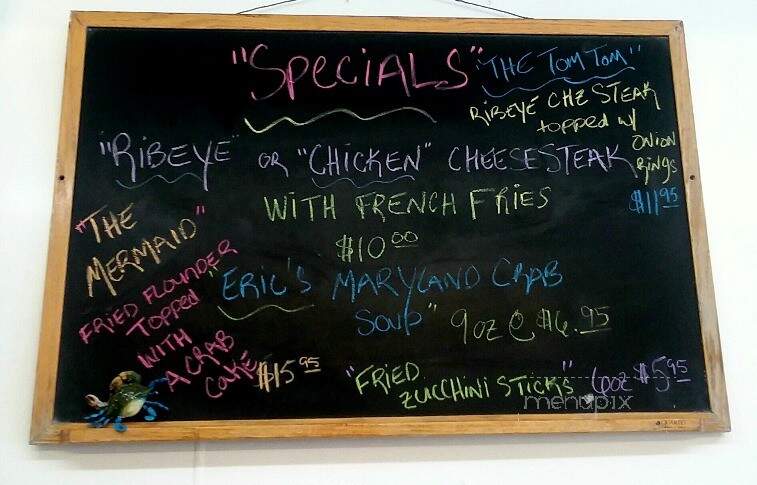 "SPECIALS"
"THE TOM TOM"
RIBEYE CHZ STEAK
topped w/
ONION
RINGS
$11 95
"RIBEYE" OR "CHICKEN" CHEESESTEAK
WITH FRENCH FRIES
$10 00
"THE
MERMAID"
FRIED FLOUNDER
TOPPED
WITH
A CRAB
CAKE $15 95
"ERIC'S MARYLAND CRAB
SOUP" 9oz @ $6.95
"FRIED
ZUCCHINI STICKS" 6oz $5 95
menupix